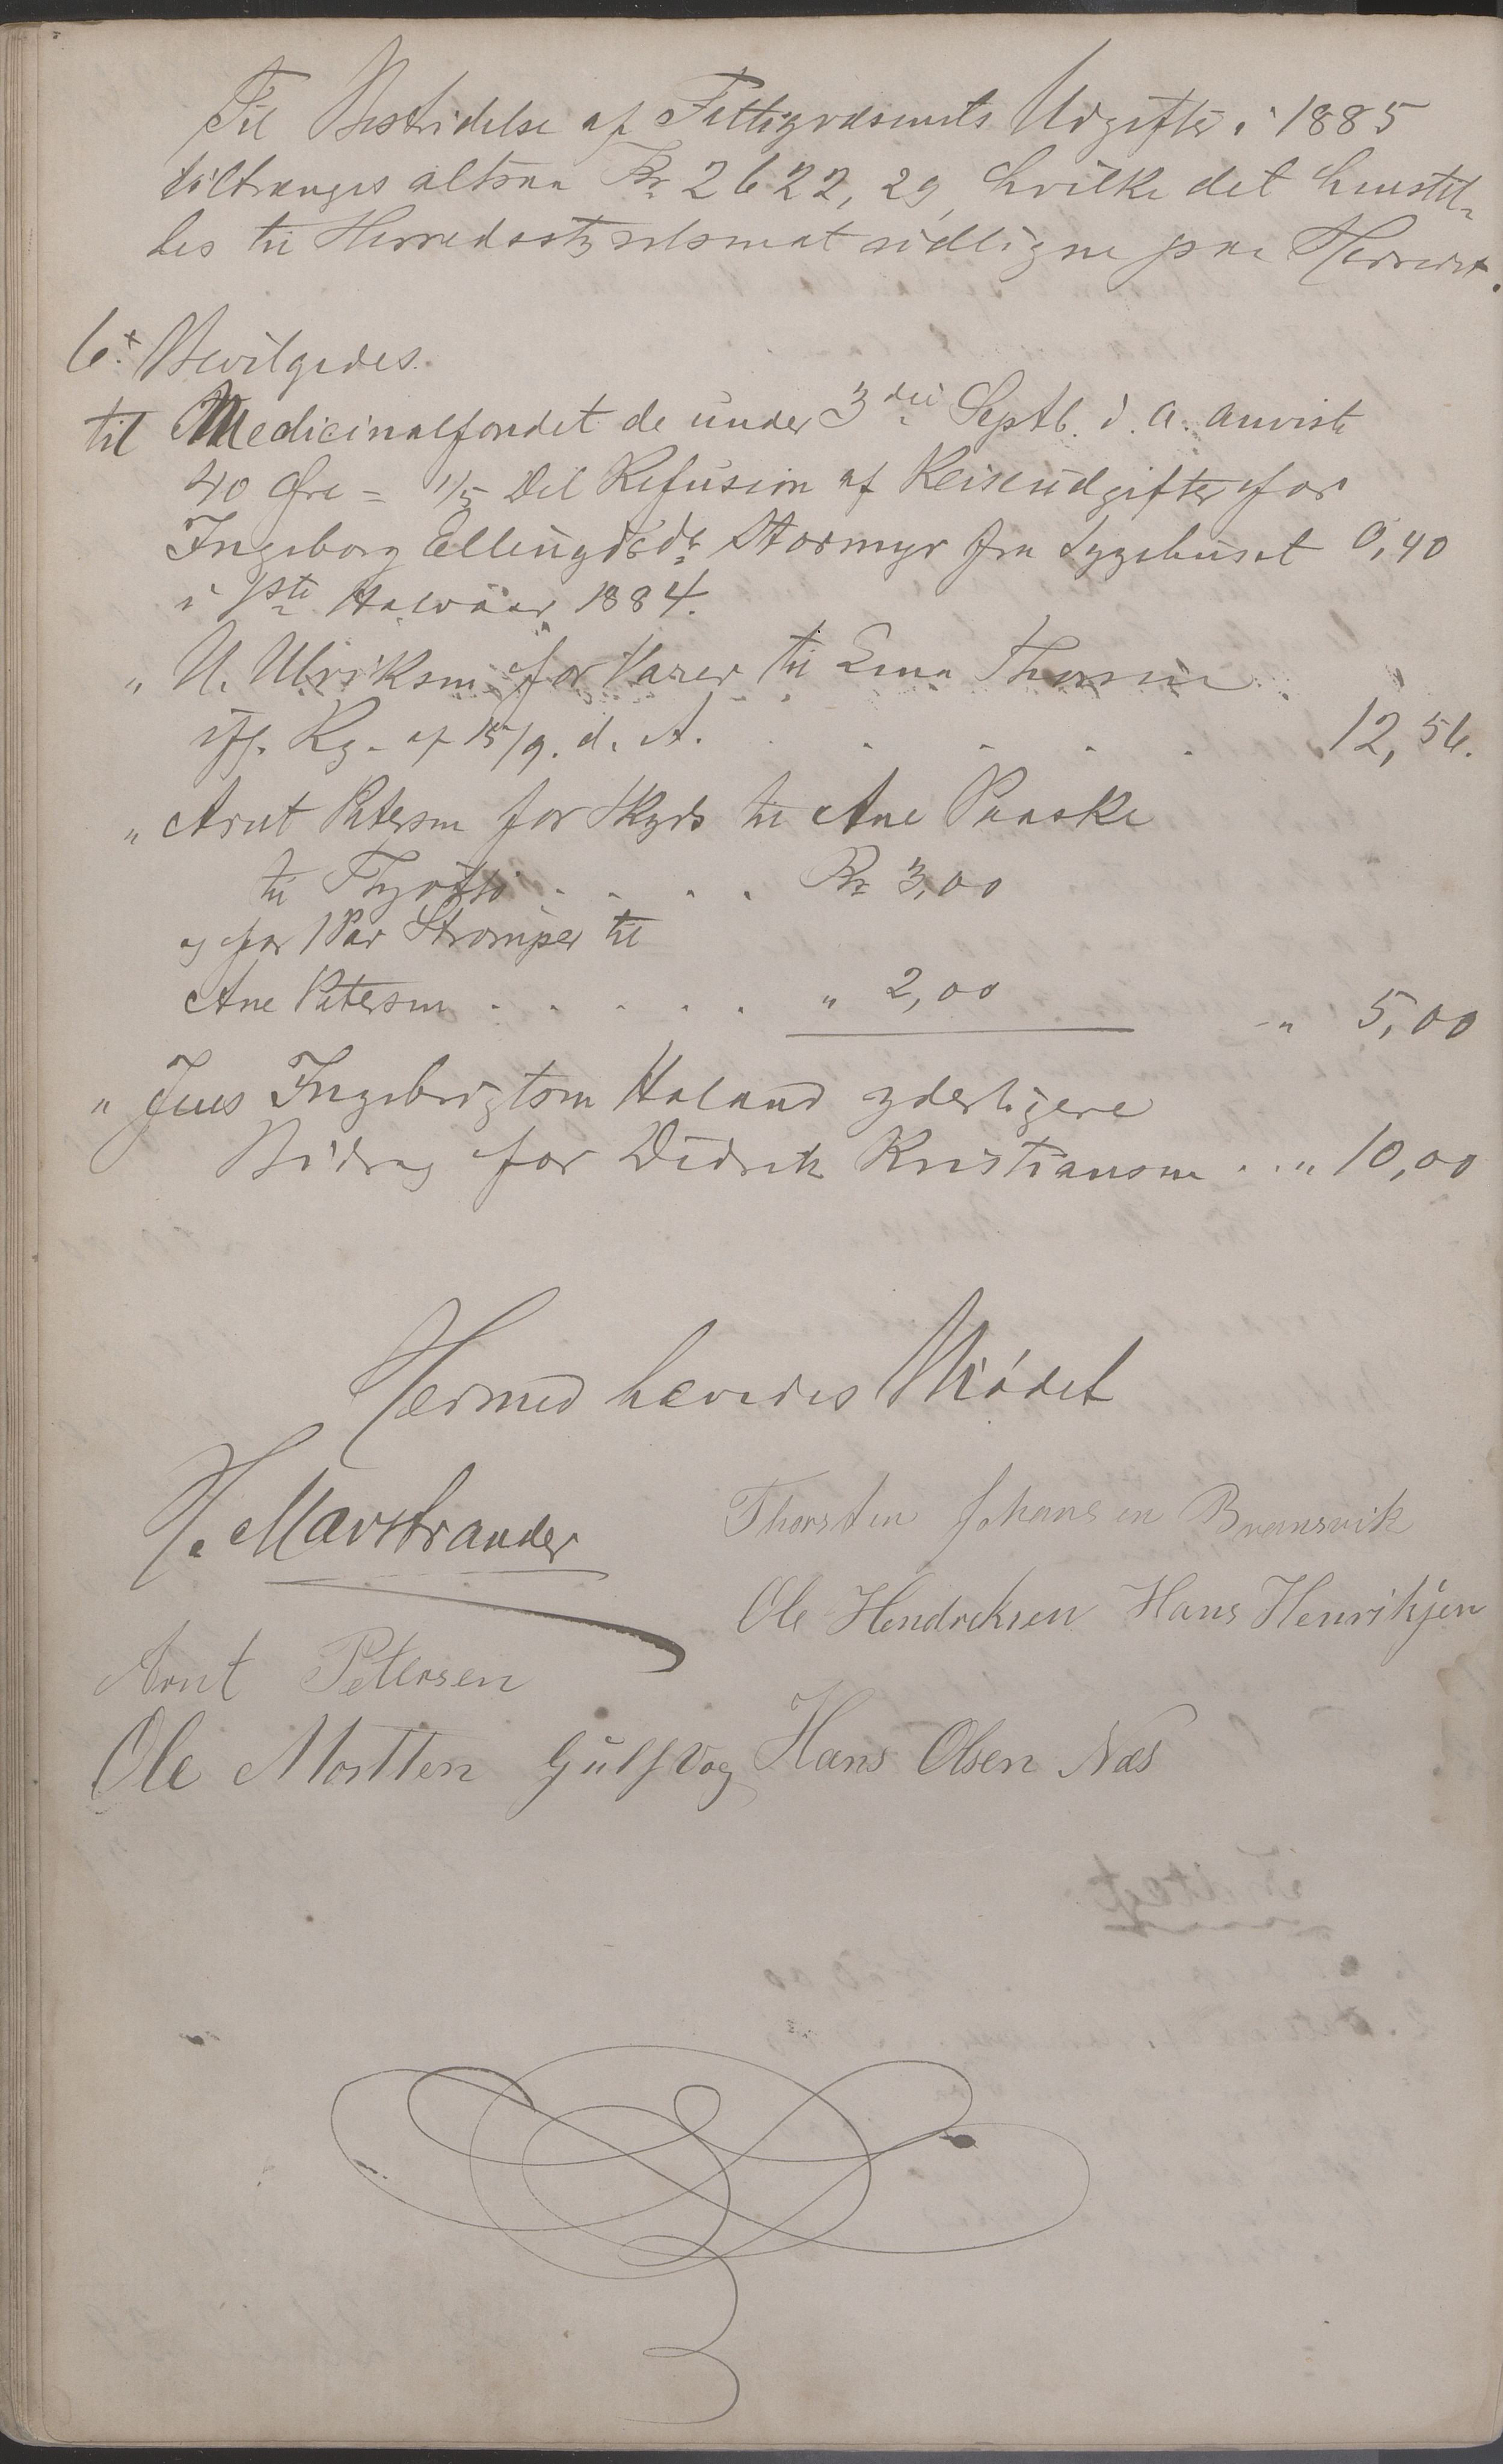 Til Bestridelse af Fattigvæsenets Udgifter i 1885
tiltrænges altsaa Kr 2622,29, hvilke det henstil-
les til Herredsstyrelsen at udligne paa Herredet.
6. Bevilgedes.
til Medicinalfondet de under 3die Septb. d. a. anviste
40 Øre = 1/5 Del Refusion af Reiseudgifter for
Ingeborg Ellingsdtr Stormyr fra Sygehuset 0,40
i 1ste Halvaar 1884.
" U. Ulriksen for Varer til Enna Thorsen
iflg. Rg. af 15/9. d. A. . . . . . 12,56.
" Arnt Petersen for Skyds til Ane Paaske
til Thjøtto . . . . Kr 3,00
og for 1 Par Strømper til
Ane Petersen . . . . . " 2,00 " 5,00
" Jens Ingebrigtsen Haland yderligere
Bidrag for Didrik Kristiansen . . . " 10,00
Hermed hævedes Mødet
H. Marstrander Thorsten Johansen Brænsvik
Ole Hendreksen Hans Henriksen
Arnt Petersen
Ole Mortten Gulsvog Hans Olsen Næs